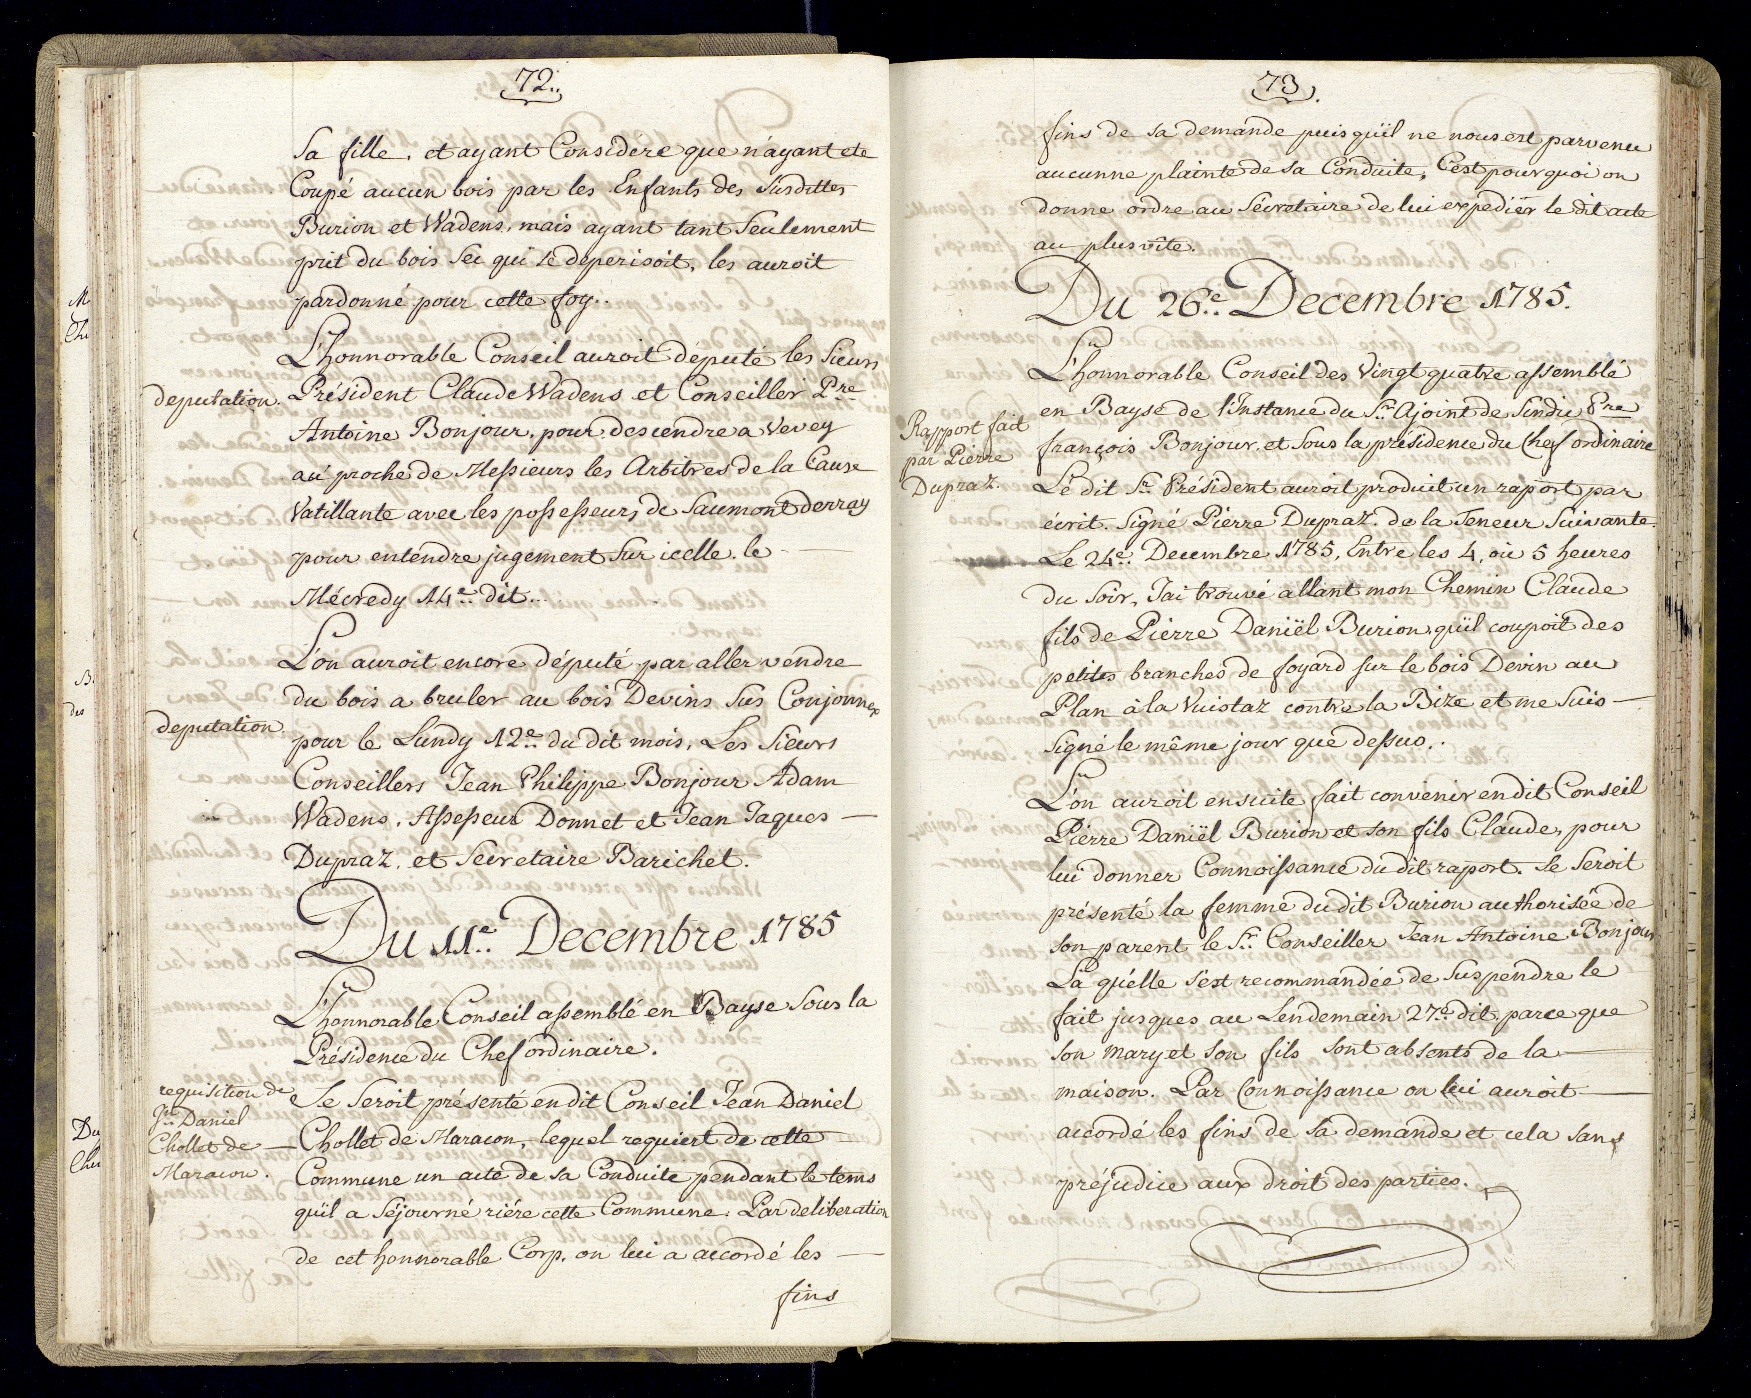 72..
Sa fille, et ayant Consideré que n'ayant ete
Coupé aucun bois par les Enfants des Susdittes
Burion et Wadens, mais ayant tant Seulement
prit du bois Sec qui se deperisoit, les auroit
pardonné pour cette foy..
L'honnorable Conseil auroit député les Sieurs
deputation. Président Claude Wadens et Conseiller Pre
Antoine Bonjour, pour descendre a Vevey
au proche de Messieurs les Arbitres de la Cause
Vatillante avec les possesseurs de Saumont derray
pour entendre jugement Sur icelle, le —
Mécredy 14e.. dit...
L'on auroit encore député par aller vendre
du bois a bruler au bois Devins Sus Conjonnex
deputation pour le Lundy 12e.. du dit mois, Les Sieurs
Conseillers Jean Philippe Bonjour Adam
Wadens, Assesseur Donnet et Jean Jaques —
Dupraz, et Secretaire Barichet.
Du 11e.. Decembre 1785
L'honnorable Conseil assemblé en Bayse Sous la
Présidence du Chef ordinaire.
requisition de
Jn Daniel
Chollet de —
Maracon.
Se Seroit présenté en dit Conseil Jean Daniel
Chollet de Maracon, lequel requiert de cette
Commune un acte de sa Conduite pendant le tems
qu'il a Séjourné riére cette Commune. Par deliberation
de cet honnorable Corp. on lui a accordé les —
fins
73.
fins de sa demande puis qu'il ne nous est parvenu
aucunne plainte de sa Conduite, C'est pourquoi on
donne ordre au Sécretaire de lui expediër le dit acte
au plus vîte.
Du 26e.. Decembre 1785.
L'honnorable Conseil des Vingt quatre assemblé
en Bayse de l'Instance du Sr. Ajoint de Sindic Pre
Rapport fait
par Pierre
Dupraz.
françois Bonjour, et Sous la présidence du Chef ordinaire
Le dit Sr. Président auroit produit un raport par
écrit. Signé Pierre Dupraz. de la Teneur Suivante.
Le 24e.. Decembre 1785, Entre les 4, ou 5 heures
du Soir, J'ai trouvé allant mon Chemin Claude
fils de Pierre Daniël Burion, qu'il coupoit des
petites branches de foyard sur le bois Devin au
Plan à la Vuistaz contre la Bize et me Suis —
Signé le même jour que dessus..
L'on auroit ensuite fait convenir en dit Conseil
Pierre Daniël Burion et son fils Claude, pour
lui donner Connoissance du dit raport. Se Seroit
présenté la femme du dit Burion authorisée de
son parent le Sr. Conseiller Jean Antoine Bonjour
La quélle s'est recommandée de Suspendre le
fait jusques au Lendemain 27e. dit, parce que
son mary et son fils sont absents de la —
maison. Par Connoissance on lui auroit —
accordé les fins de Sa demande et cela sans
préjudice aux droit des parties.